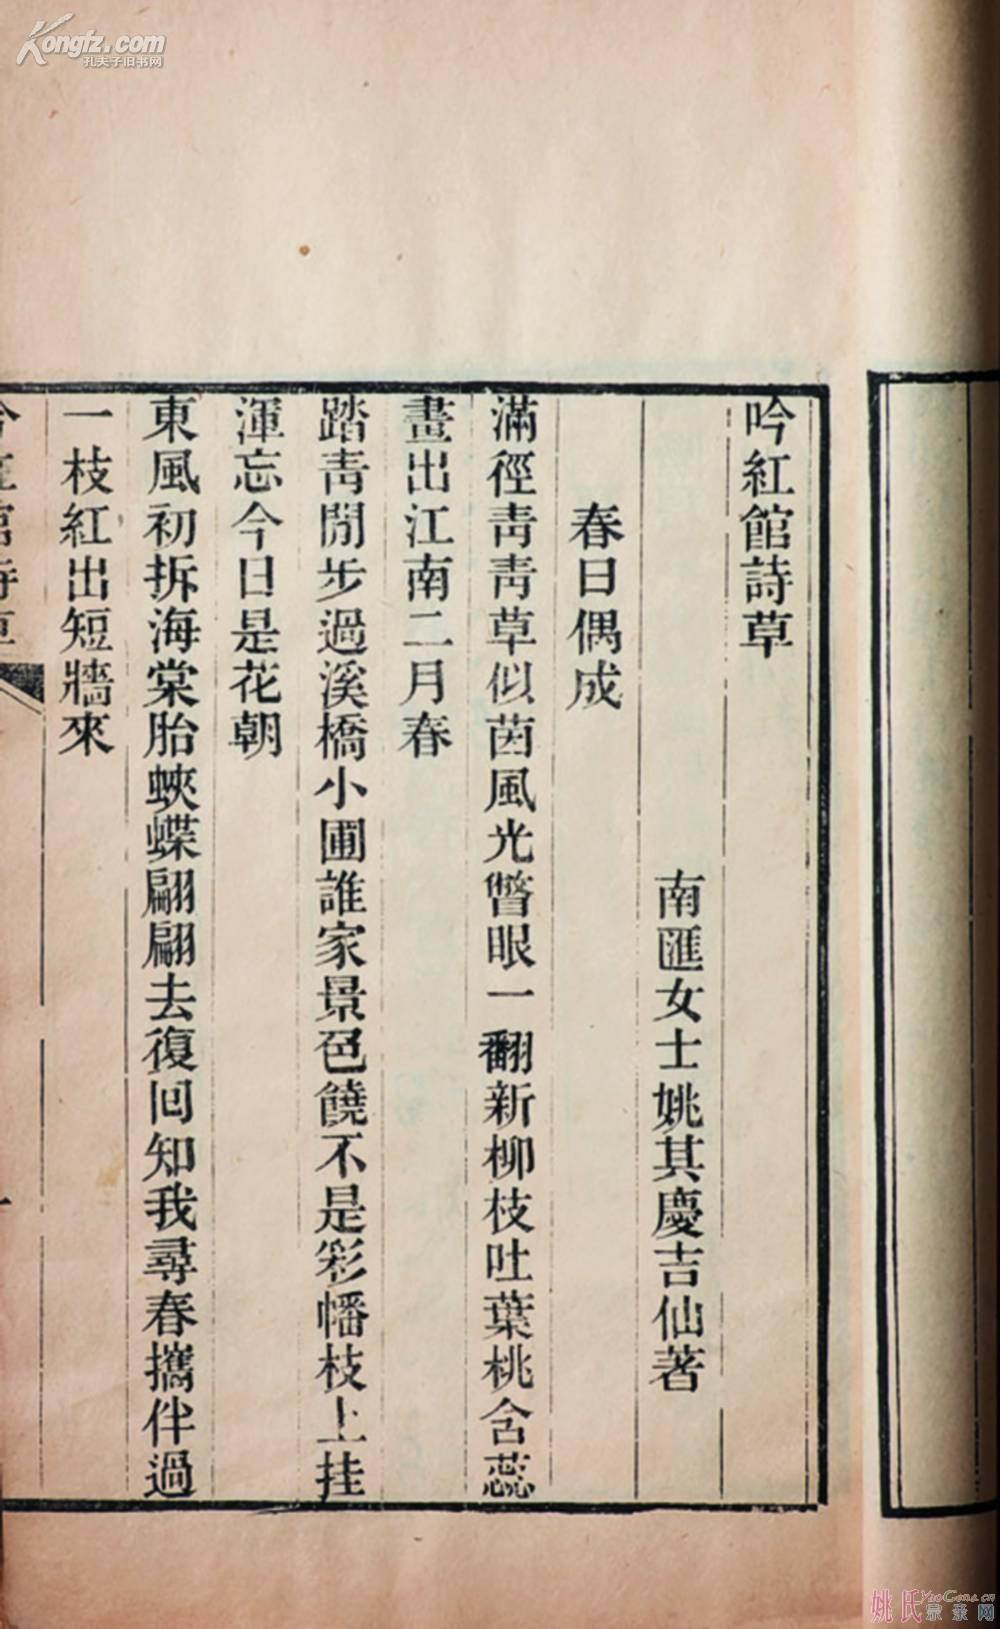 吟紅館詩草
南匯女士姚其慶吉仙著
春日偶成
滿徑青青草似茵風光瞥眼一翻新柳枝吐葉桃含蕊
畫出江南二月春
踏青閒步過溪橋小圃誰家景色饒不是彩幡枝上挂
渾忘今日是花朝
東風初拆海棠胎蛺蝶翩翩去復回知我尋春攜伴過
一枝紅出短牆來
吟紅館詩草
一
Kongfz.com
孔夫子旧书网
姚氏
YaoGens.cn
宗亲网